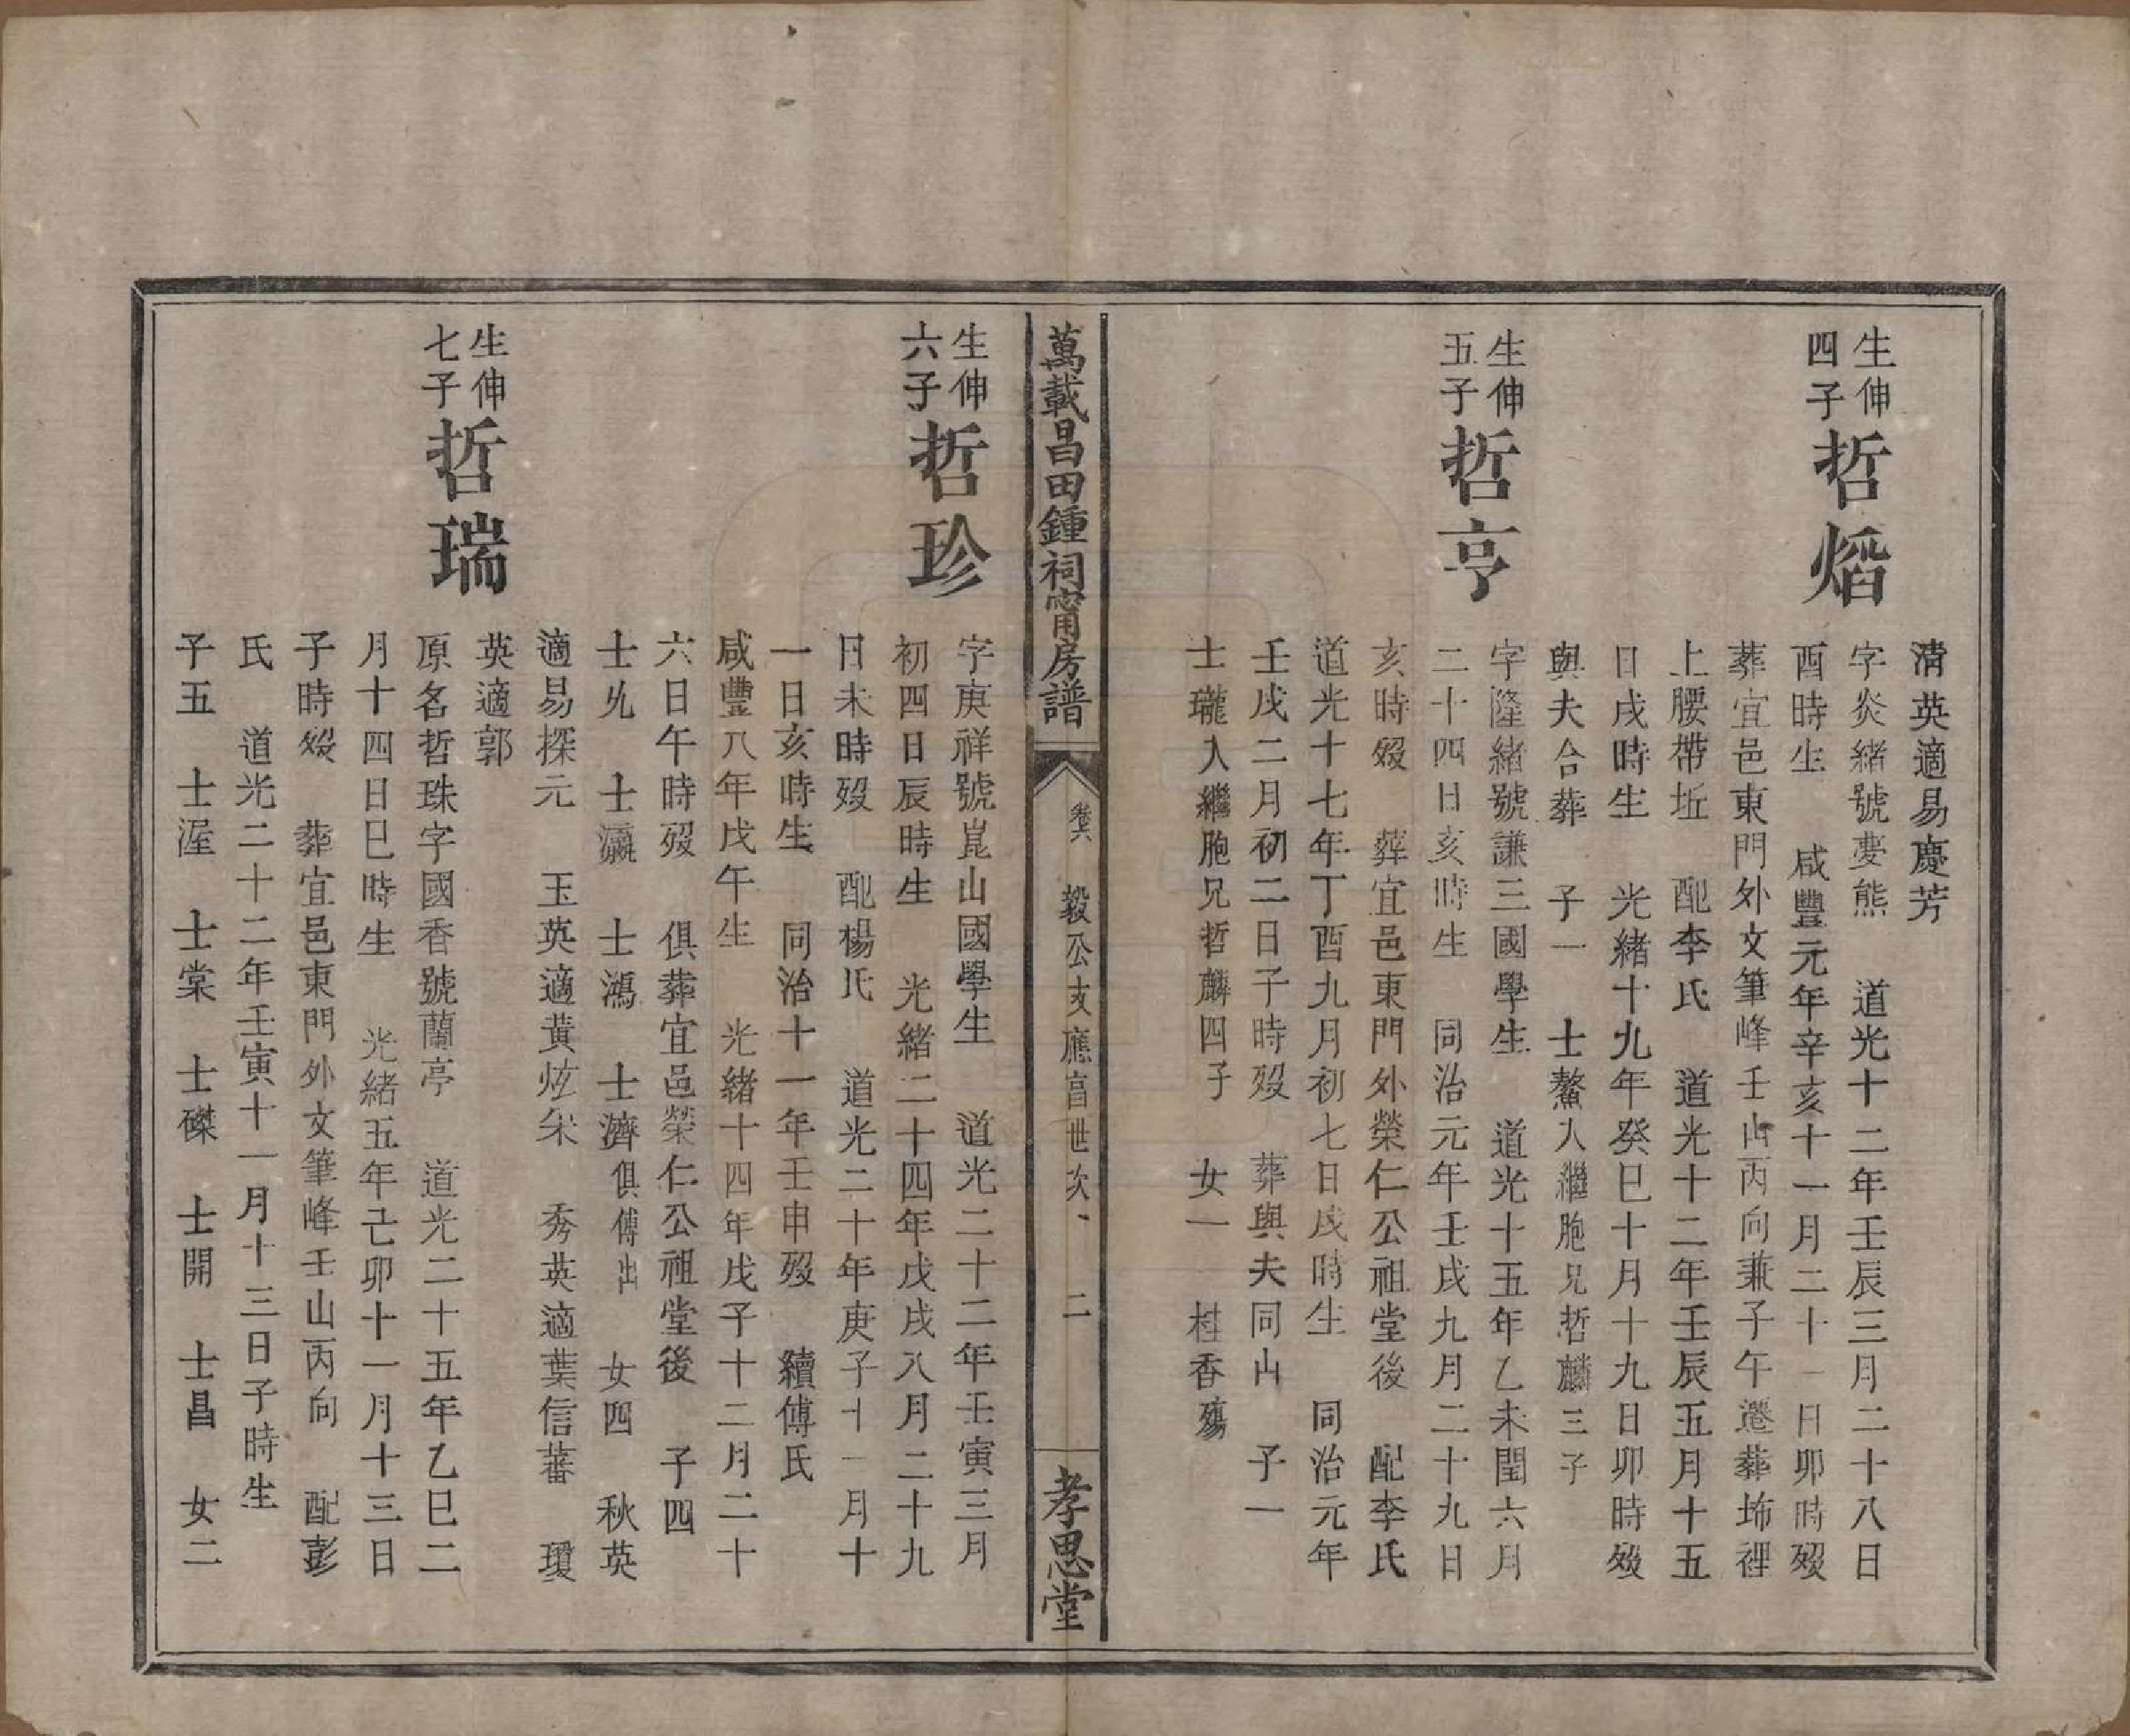 清英適易慶芳
生伸四子
哲熖
字炎緒號夢熊 道光十二年壬辰三月二十八日
酉時生 咸豐元年辛亥十一月二十一日卯時歿
葬宜邑東門外文筆峰壬山丙向兼子午遷葬㘵裡
上腰帶坵 配李氏 道光十二年壬辰五月十五
日戌時生 光緒十九年癸巳十月十九日卯時歿
與夫合葬 子一 士鰲入繼胞兄哲麟三子
生伸五子
哲亨
字隆緒號謙三國學生 道光十五年乙未閏六月
二十四日亥時生 同治元年壬戌九月二十九日
亥時歿 葬宜邑東門外榮仁公祖堂後 配李氏
道光十七年丁酉九月初七日戌時生 同治元年
壬戌二月初二日子時歿 葬與夫同山 子一
士瓏入繼胞兄哲麟四子 女一 桂香殤
萬載昌田鍾祠甯房譜 卷六 毅公支應昌世次 二 孝思堂
生伸六子
哲珍
字庚祥號崑山國學生 道光二十二年壬寅三月
初四日辰時生 光緒二十四年戊戌八月二十九
日未時歿 配楊氏 道光二十年庚子十一月十
一日亥時生 同治十一年壬申歿 續傅氏
咸豐八年戊午生 光緒十四年戊子十二月二十
六日午時歿 俱葬宜邑榮仁公祖堂後 子四
士㐇 士瀛 士鴻 士濟俱傅出 女四 秋英
適易探元 玉英適黃炫荣 秀英適葉信蕃 瓊
英適郭
生伸七子
哲瑞
原名哲珠字國香號蘭亭 道光二十五年乙巳二
月十四日巳時生 光緒五年己卯十一月十三日
子時歿 葬宜邑東門外文筆峰壬山丙向 配彭
氏 道光二十二年壬寅十一月十三日子時生
子五 士渥 士棠 士磔 士開 士昌 女二